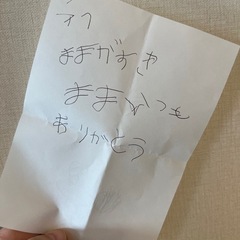 ままがすき
ままいつも
ありがとう